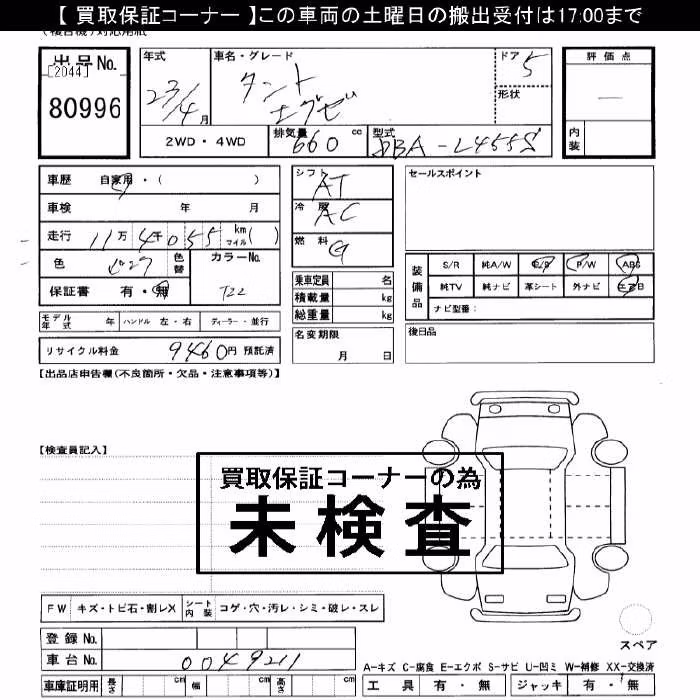 【 買取保証コーナー 】この車両の土曜日の搬出受付は17:00まで
出品No.
[2044]
80996
年式 23/4月
車名・グレード タント エグゼ
ドア 5
形状
2WD・4WD
排気量 660 cc
型式 DBA-L455S
評価点
—
内装
車歴 自家用・( )
車検 年 月
走行 11万4千055 km マイル( )
色 ピンク 色替 カラーNo. T22
保証書 有・無
モデル年式 年 ハンドル 左・右 ディーラー・並行
リサイクル料金 9460円 預託済
シフト AT
冷房 AC
燃料 G
乗車定員 名
積載量 kg
総重量 kg
名変期限
月 日
セールスポイント
装備品
S/R 純A/W P/S P/W ABS
純TV 純ナビ 革シート 外ナビ エアB
ナビ型番:
後日品
【出品店申告欄(不良箇所・欠品・注意事項等)】
【検査員記入】
買取保証コーナーの為
未検査
FW キズ・トビ石・割レX シート内装 コゲ・穴・汚レ・シミ・破レ・スレ
スペア
登録No.
車台No. 0049211
A-キズ C-腐食 E-エクボ S-サビ U-凹ミ W-補修 XX-交換済
車庫証明用 長さ cm 幅 cm 高さ cm
工具 有・無 ジャッキ 有・無